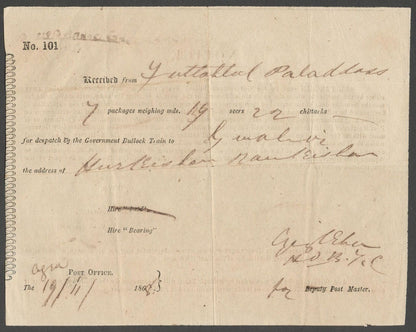 No. 101
Received from Futtohlal
7 packages weighing mds. 19 seers 22 chittacks
for despatch by the Government Bullock Train to Gwalior
the address of Hurkishen Ramkishen
Hire "paid"
Hire "Bearing"
Agra
POST OFFICE.
The 19/11/ 186
for Deputy Post Master.